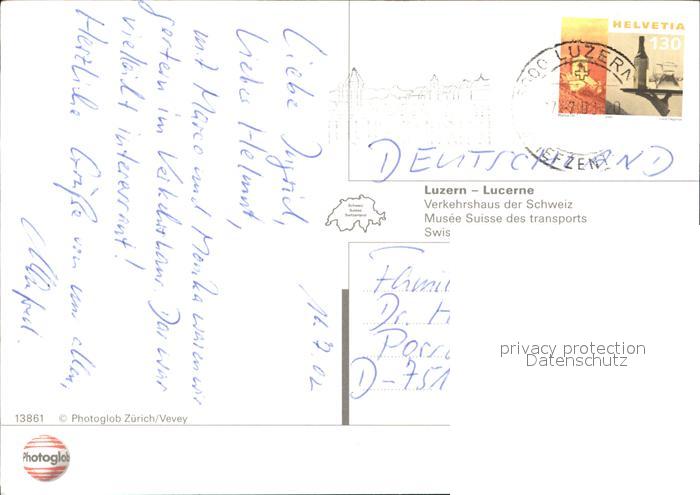 16.7.02
Liebe Ingrid,
lieber Helmut,
mit Marco und Monika waren wir
gestern im Verkehrshaus. Das war
vielleicht interessant!
Herzliche Grüße von uns allen,
HELVETIA
130
LUZERN
DEUTSCHLAND
Luzern – Lucerne
Verkehrshaus der Schweiz
Musée Suisse des transports
Swis
Schweiz
Suisse
Switzerland
Fami
Dr. H
D-751
privacy protection
Datenschutz
13861 © Photoglob Zürich/Vevey
Photoglob